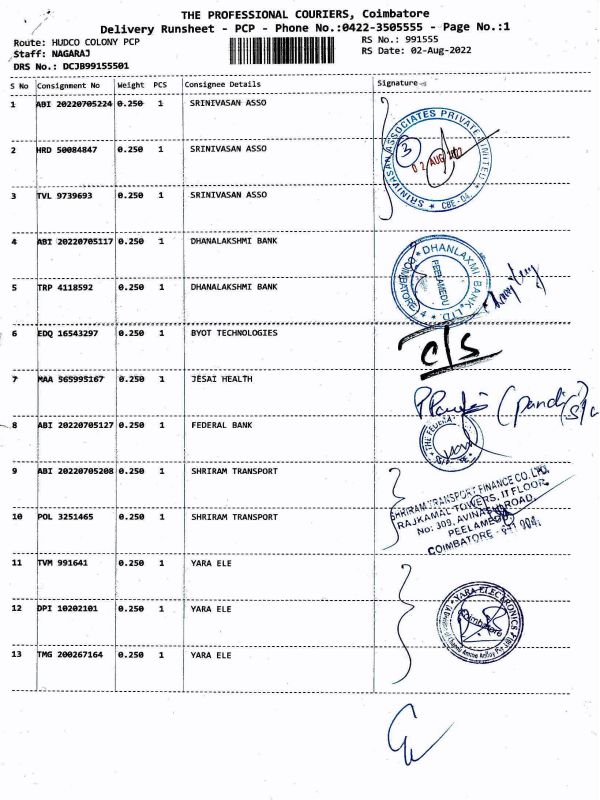 THE PROFESSIONAL COURIERS, Coimbatore
Delivery Runsheet - PCP - Phone No.:0422-3505555 - Page No.:1
Route: HUDCO COLONY PCP
RS No.: 991555
Staff: NAGARAJ
RS Date: 02-Aug-2022
DRS No.: DCJB99155501
S No Consignment No Weight PCS Consignee Details Signature
1 ABI 20220705224 0.250 1 SRINIVASAN ASSO
SRINIVASAN ASSOCIATES PRIVATE LIMITED
3
02 AUG
CBE-04
2 HRD 50084847 0.250 1 SRINIVASAN ASSO
3 TVL 9739693 0.250 1 SRINIVASAN ASSO
4 ABI 20220705117 0.250 1 DHANALAKSHMI BANK
DHANLAXMI BANK LTD.
PEELAMEDU
COIMBATORE 4
5 TRP 4118592 0.250 1 DHANALAKSHMI BANK
6 EDQ 16543297 0.250 1 BYOT TECHNOLOGIES
C/S
7 MAA 565995167 0.250 1 JESAI HEALTH
8 ABI 20220705127 0.250 1 FEDERAL BANK
THE FEDERAL
9 ABI 20220705208 0.250 1 SHRIRAM TRANSPORT
SHRIRAM TRANSPORT FINANCE CO. LTD.
RAJKAMAL TOWERS, II FLOOR,
No: 309, AVINASHI ROAD,
PEELAMEDU,
COIMBATORE - 641 004.
10 POL 3251465 0.250 1 SHRIRAM TRANSPORT
11 TVM 991641 0.250 1 YARA ELE
YARA ELECTRONICS
Coimbatore
12 DPI 10202101 0.250 1 YARA ELE
13 TMG 200267164 0.250 1 YARA ELE